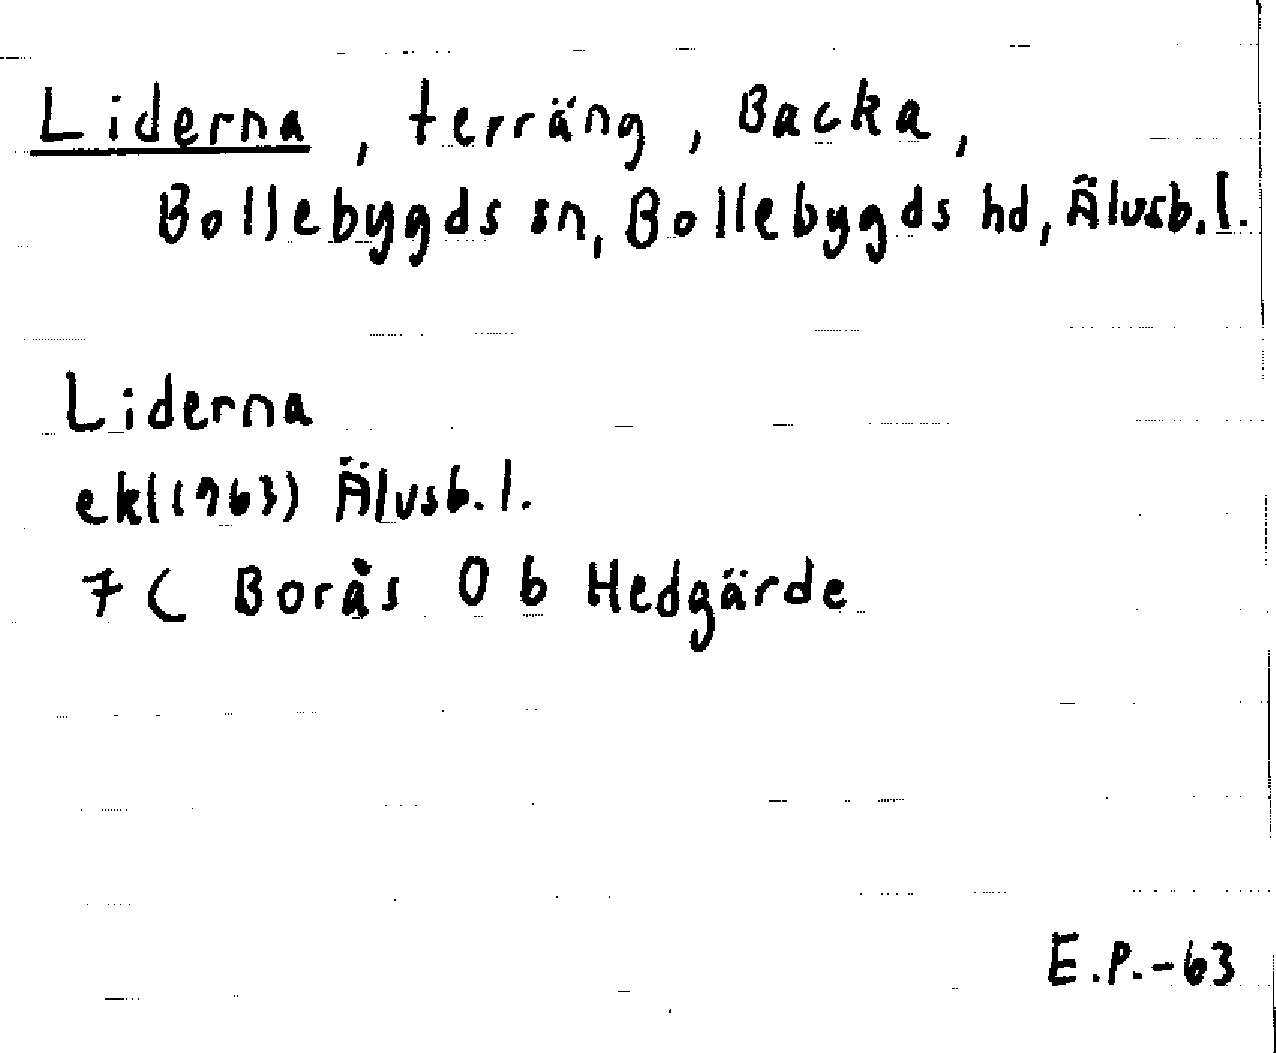 Liderna, terräng, Backa,
Bollebygds sn, Bollebygds hd, Älvsb. l.
Liderna
ekl(1963) Älvsb. l.
7 C Borås 0 b Hedgärde
E.P.-63